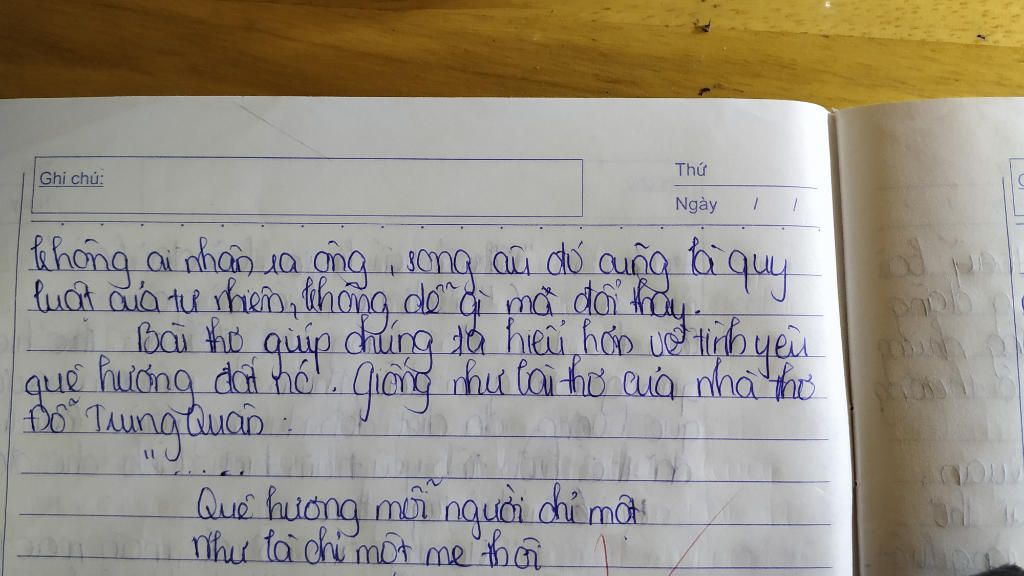 Ghi chú:
Thứ
Ngày / /
không ai nhận ra ông, song cũ đó cũng là quy
luật của tự nhiên, không dễ gì mà đổi thay.
Bài thơ giúp chúng ta hiểu hơn về tình yêu
quê hương đất nó. Giống như lài thơ của nhà thơ
Đỗ Trung Quân :
" .....
Quê hương mỗi người chỉ một
Như là chỉ một mẹ thôi